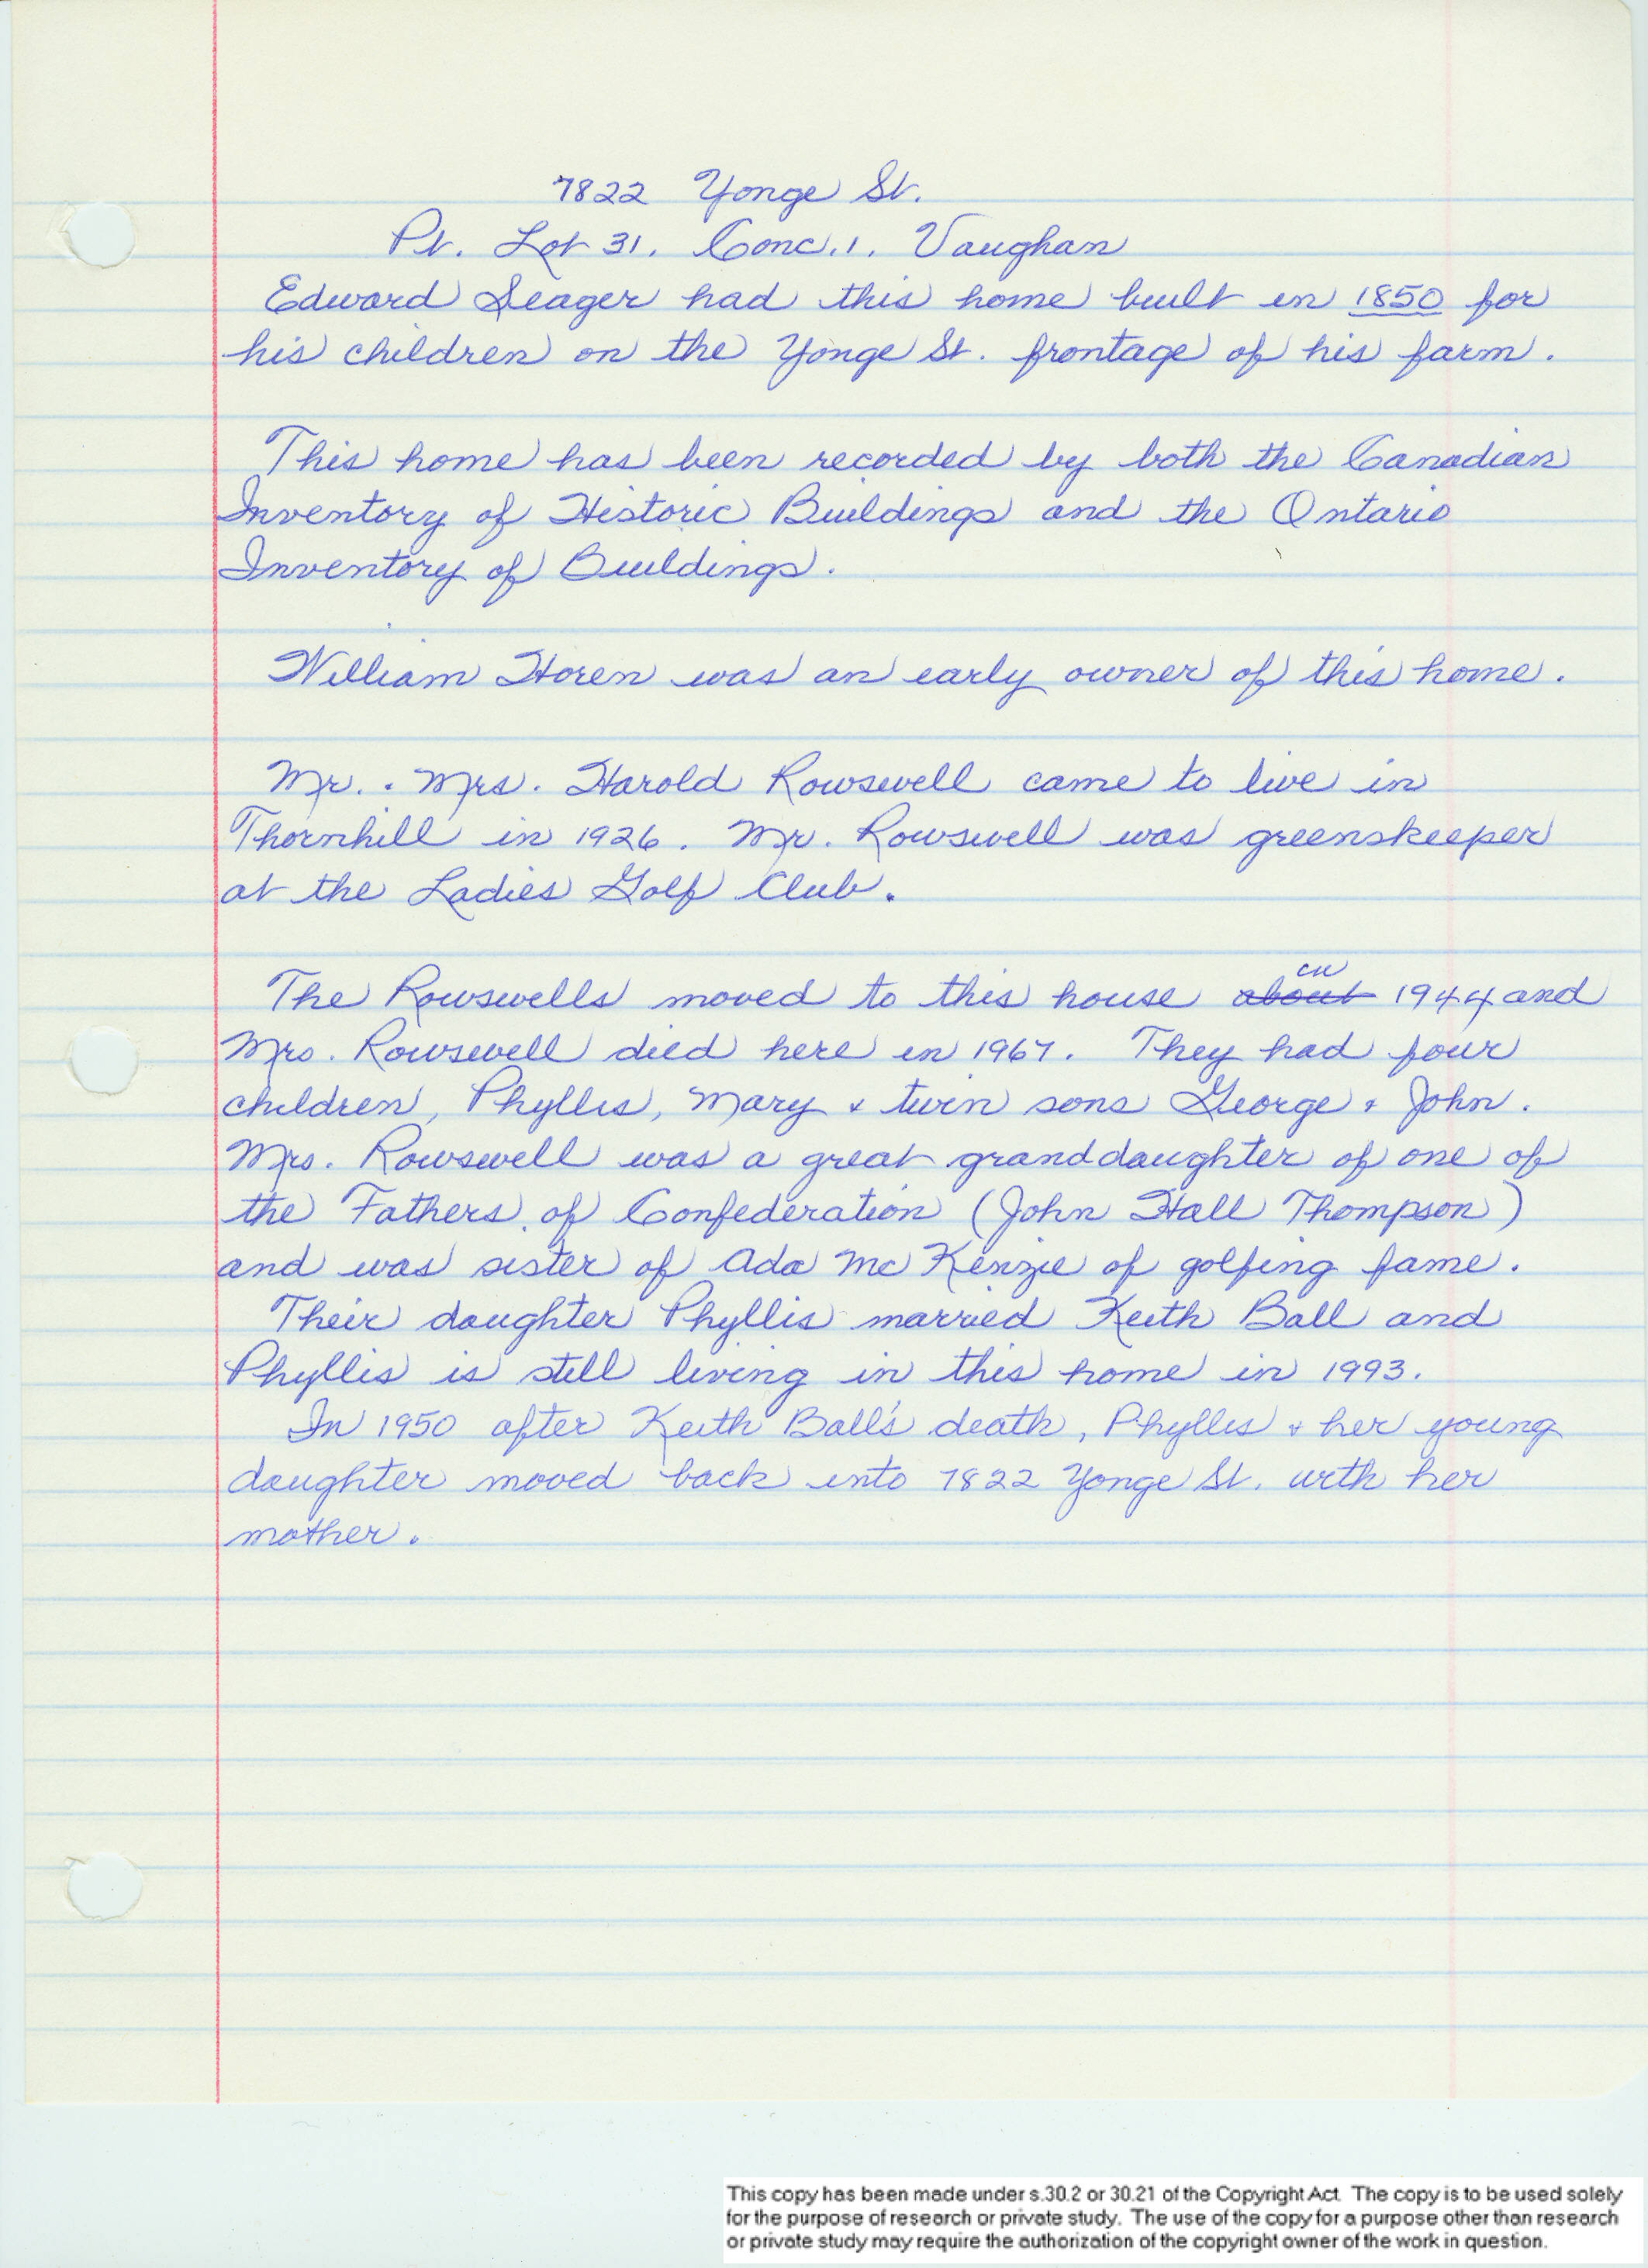 7822 Yonge St.
Pt. Lot 31. Conc. 1. Vaughan
Edward Seager had this home built in 1850 for
his children on the Yonge St. frontage of his farm.
This home has been recorded by both the Canadian
Inventory of Historic Buildings and the Ontario
Inventory of Buildings.
William Horen was an early owner of this home.
Mr. & Mrs. Harold Rowswell came to live in
Thornhill in 1926. Mr. Rowswell was greenskeeper
at the Ladies Golf Club.
The Rowswells moved to this house about in 1944 and
Mrs. Rowswell died here in 1967. They had four
children, Phyllis, Mary & twin sons George & John.
Mrs. Rowswell was a great granddaughter of one of
the Fathers of Confederation (John Hall Thompson)
and was sister of Ada McKenzie of golfing fame.
Their daughter Phyllis married Keith Ball and
Phyllis is still living in this home in 1993.
In 1950 after Keith Ball's death, Phyllis & her young
daughter moved back into 7822 Yonge St. with her
mother.
This copy has been made under s.30.2 or 30.21 of the Copyright Act. The copy is to be used solely
for the purpose of research or private study. The use of the copy for a purpose other than research
or private study may require the authorization of the copyright owner of the work in question.